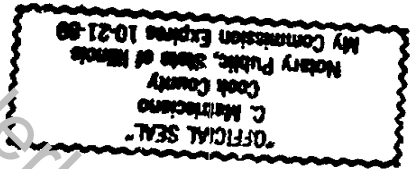 "OFFICIAL SEAL"
C. Matrisciano
Cook County
Notary Public, State of Illinois
My Commission Expires 10-21-89